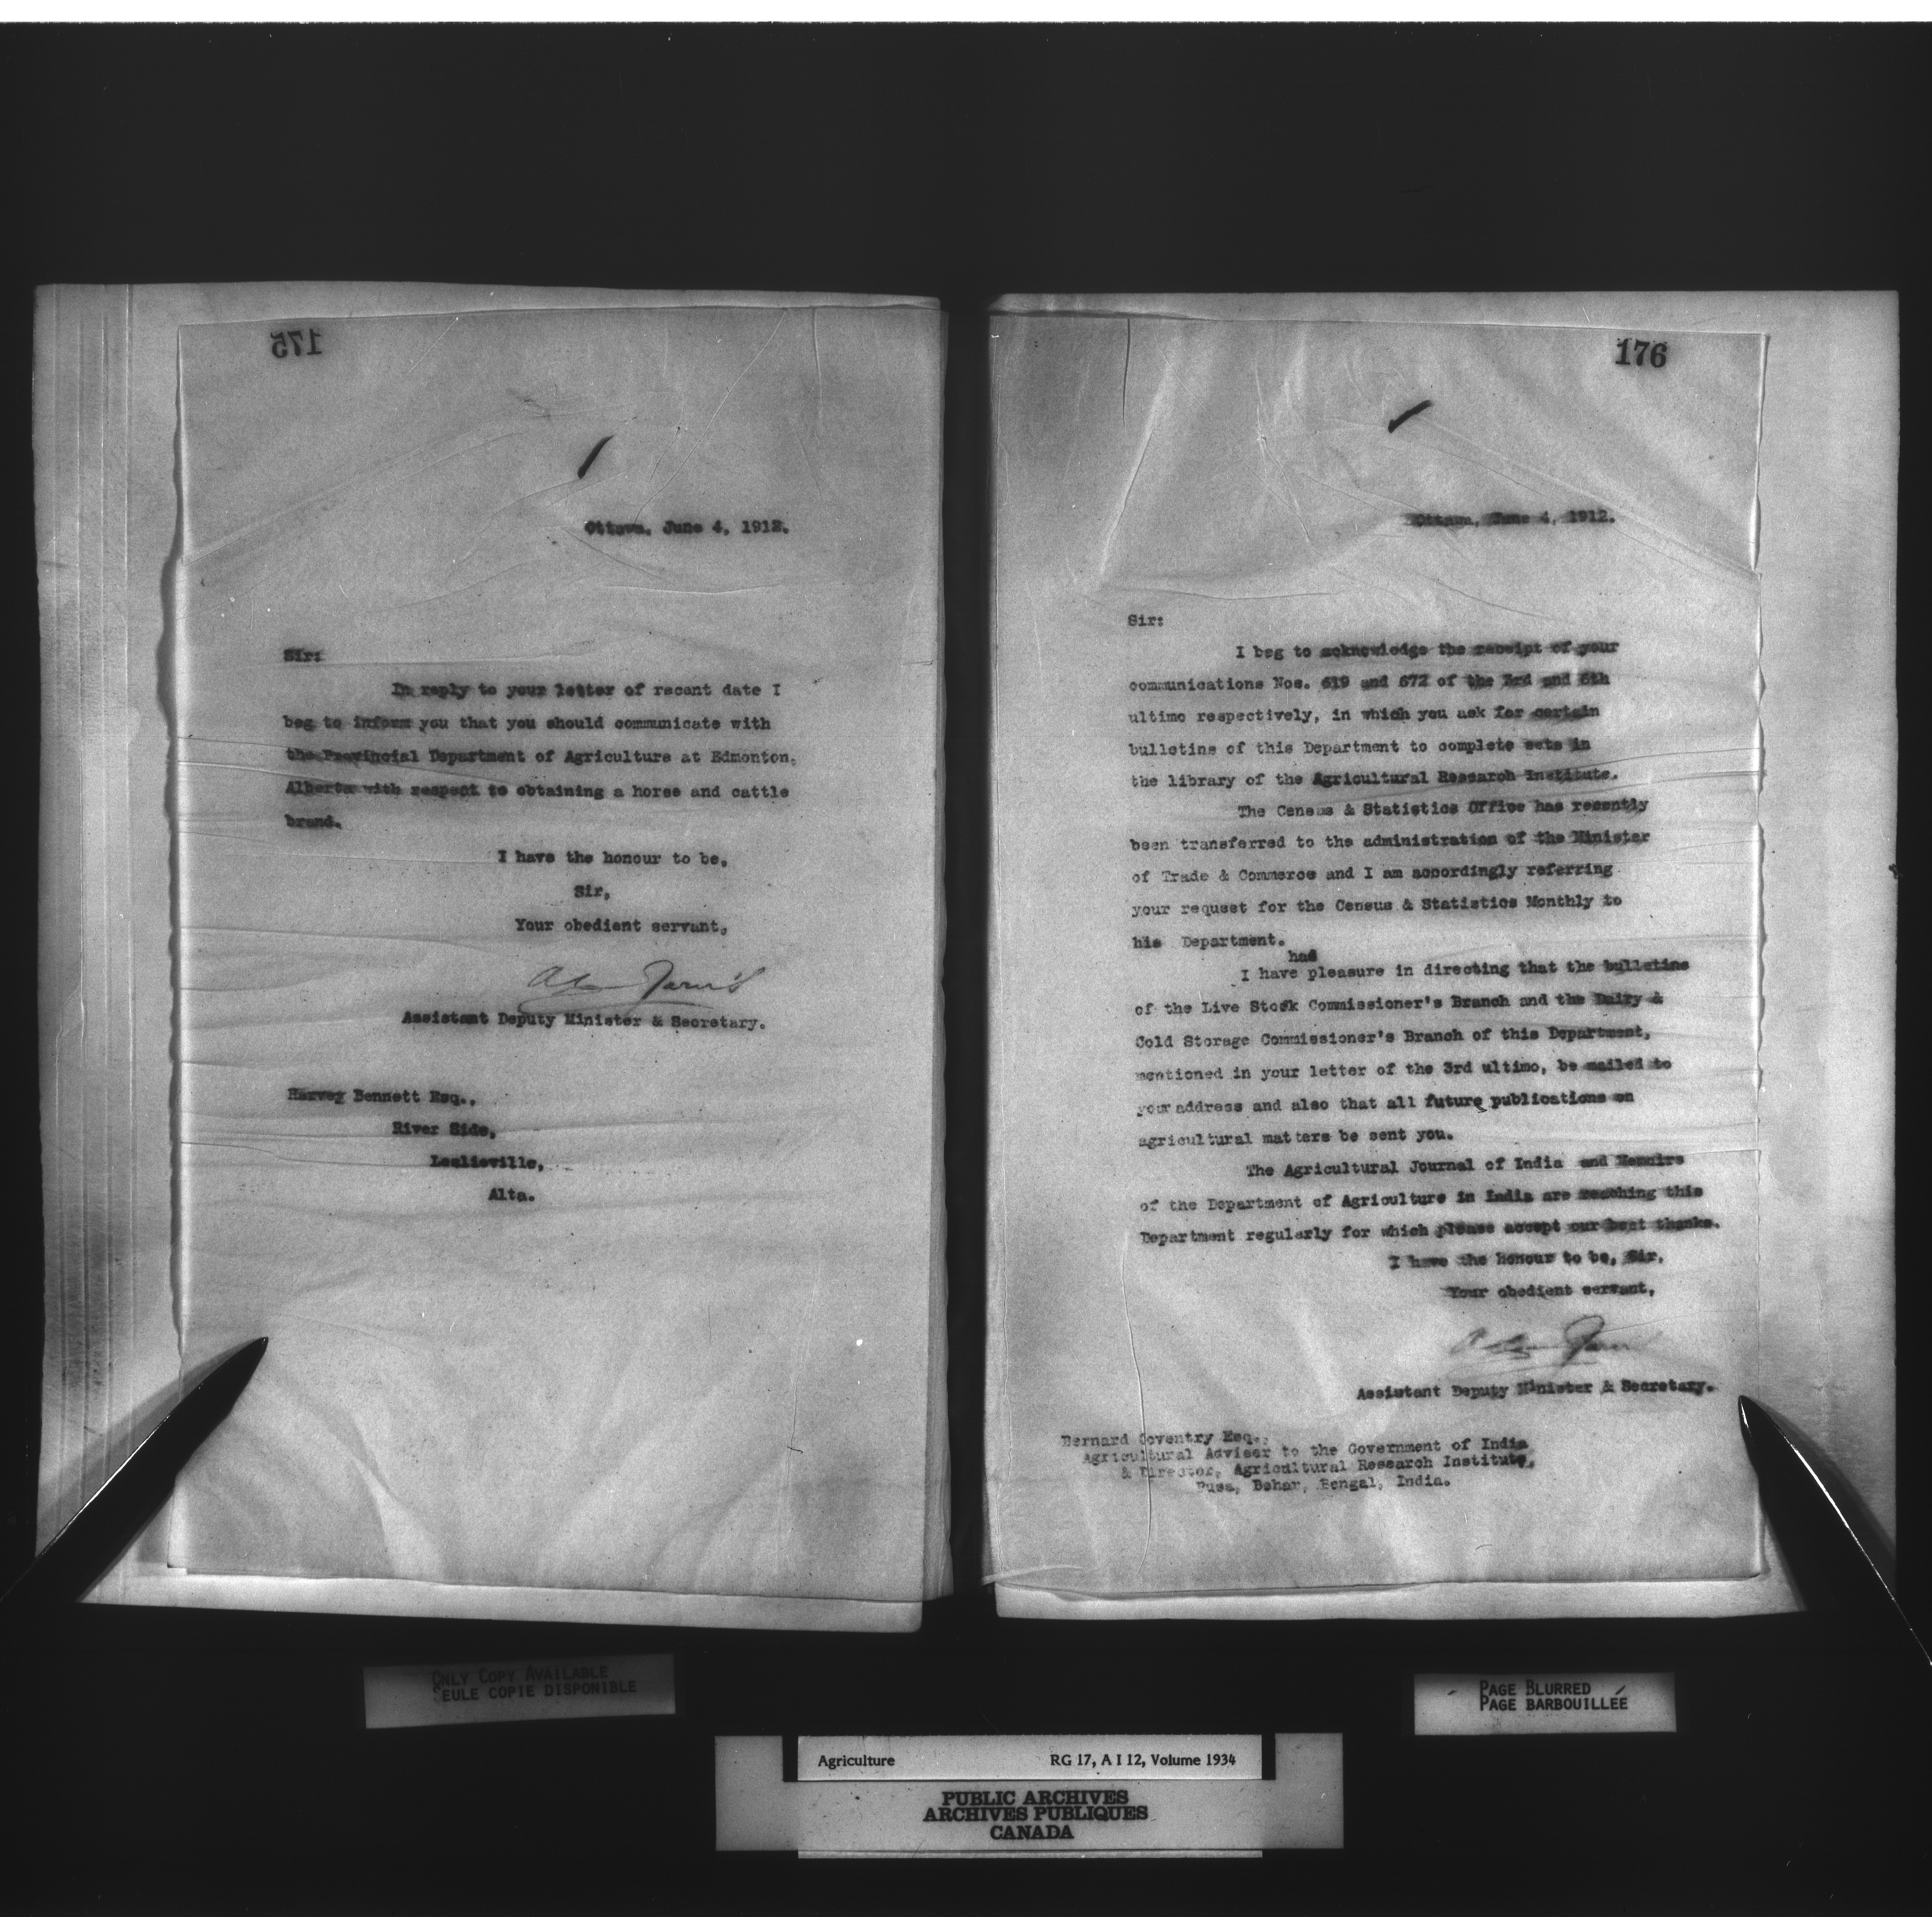 175
Ottawa, June 4, 1912.
Sir:
In reply to your letter of recent date I
beg to inform you that you should communicate with
the Provincial Department of Agriculture at Edmonton,
Alberta with respect to obtaining a horse and cattle
brand.
I have the honour to be,
Sir,
Your obedient servant,
Assistant Deputy Minister & Secretary.
Harvey Bennett Esq.,
River Side,
Leslieville,
Alta.
176
Ottawa, June 4, 1912.
Sir:
I beg to acknowledge the receipt of your
communications Nos. 619 and 672 of the 3rd and 6th
ultimo respectively, in which you ask for certain
bulletins of this Department to complete sets in
the library of the Agricultural Research Institute.
The Census & Statistics Office has recently
been transferred to the administration of the Minister
of Trade & Commerce and I am accordingly referring
your request for the Census & Statistics Monthly to
his Department.
had
I have pleasure in directing that the bulletins
of the Live Stock Commissioner's Branch and the Dairy &
Cold Storage Commissioner's Branch of this Department,
mentioned in your letter of the 3rd ultimo, be mailed to
your address and also that all future publications on
agricultural matters be sent you.
The Agricultural Journal of India and Memoirs
of the Department of Agriculture in India are reaching this
Department regularly for which please accept our best thanks.
I have the honour to be, Sir,
Your obedient servant,
Assistant Deputy Minister & Secretary.
Bernard Coventry Esq.,
Agricultural Adviser to the Government of India
& Director, Agricultural Research Institute,
Pusa, Behar, Bengal, India.
ONLY COPY AVAILABLE
SEULE COPIE DISPONIBLE
PAGE BLURRED
PAGE BARBOUILLÉE
Agriculture RG 17, A I 12, Volume 1934
PUBLIC ARCHIVES
ARCHIVES PUBLIQUES
CANADA